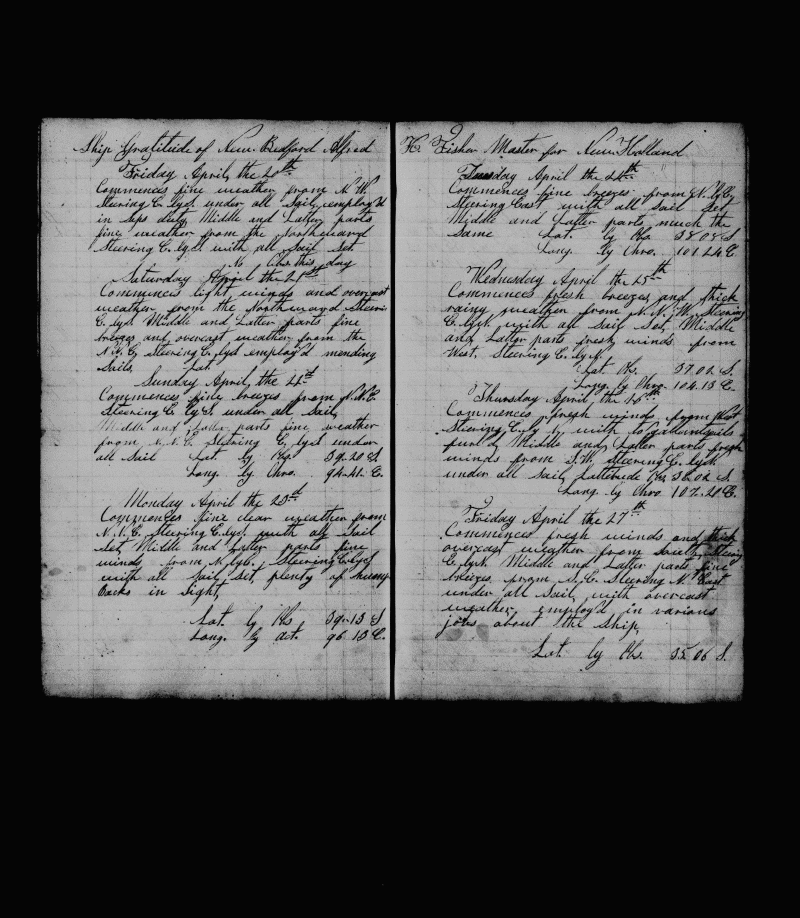 Ship Gratitude of New Bedford Alfred
Friday April the 20th
Commences fine weather from N. W.
Steering E. by S. under all Sail, employ'd
in ships duty Middle and Latter parts
fine weather from the Northward
Steering E. by S. with all Sail Set
No Obs this day
Saturday April the 21st
Commences light winds and overcast
weather from the Northward Steering
E. by S. Middle and Latter parts fine
breezes and overcast weather from the
Steering E. by S. employ'd mending
Sails. Lat
Sunday April, the 22d
Commences fine breezes from N.N.E.
Steering E. by S. under all Sail,
Middle and Latter parts fine weather
from N.N.E. Steering E. by S. under
all Sail Lat by Obs. 39-20 S
Long. by Chro. 94-42 E.
Monday April the 23d
Commences fine clear weather from
Steering E. by S. with all Sail
Set, Middle and Latter parts fine
winds from N. by E. Steering E. by S.
with all Sail Set, plenty of hump
backs in Sight,
Lat. by Obs 39-13 S
Long. by act. 96 13 E.
H. Fisher Master for New Holland
Tuesday April the 24th
Commences fine breezes from N. by E.
Steering East with all Sail Set
Middle and Latter parts much the
Same Lat. by Obs. 38.08 S
Long. by Chro. 101.24 E
Wednesday April the 25th
Commences fresh breezes and thick
rainy weather from N. N. W. Steering
E. by N. with all Sail Set, Middle
and Latter parts fresh winds from
West. Steering E. by N.
Lat Obs. 37.02 S.
Long. by Chro. 104.13 E.
Thursday April the 26th
Commences fresh winds from West
Steering E. by N. with to Gallantsails
furled, Middle and Latter parts fresh
winds from S.W. Steering E. by N.
under all Sail, Lattitude Obs 36.02 S.
Long. by Chro 107.20 E.
Friday April the 27th
Commences fresh winds and thick
overcast weather from South Steering
E. by N. Middle and Latter parts fine
breezes from S.E. Steering N. East
under all Sail, with overcast
weather, employ'd in various
jobs about the Ship,
Lat. by Obs. 35.06 S.